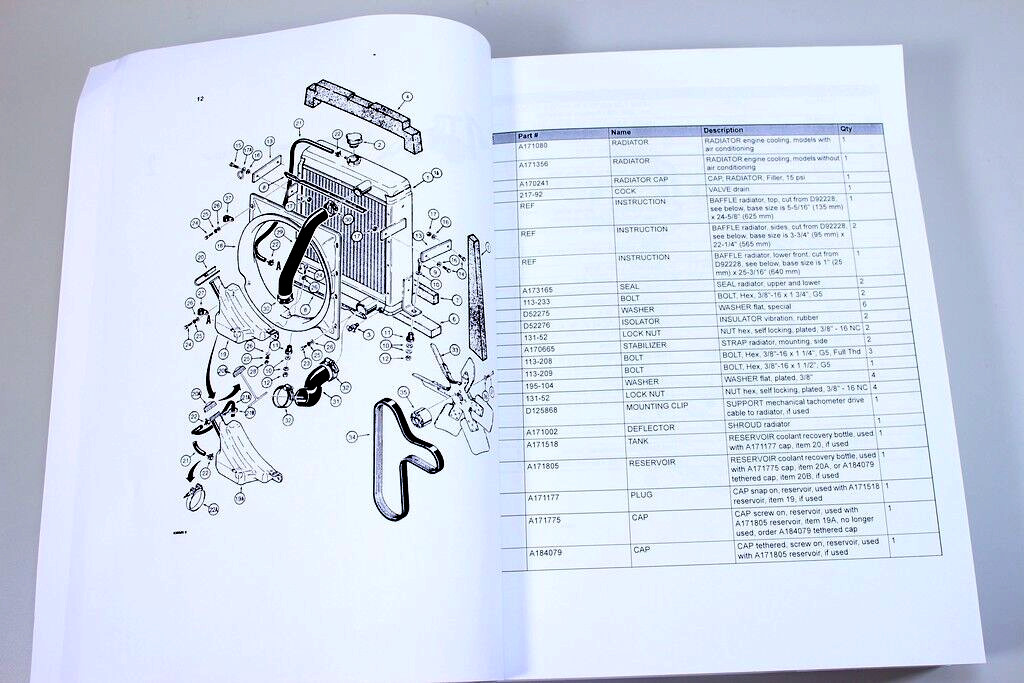 12
4
21
22
2
13
15
17
16
1
1A
34
35
33
32
31
19A
22A
Part # Name Description Qty
A171080 RADIATOR RADIATOR engine cooling, models with 1
air conditioning
A171356 RADIATOR RADIATOR engine cooling, models without 1
air conditioning
A170241 RADIATOR CAP CAP, RADIATOR, Filler, 15 psi 1
217-92 COCK VALVE drain 1
REF INSTRUCTION BAFFLE radiator, top, cut from D92228, 1
see below, base size is 5-5/16" (135 mm)
x 24-5/8" (625 mm)
REF INSTRUCTION BAFFLE radiator, sides, cut from D92228, 2
see below, base size is 3-3/4" (95 mm) x
22-1/4" (565 mm)
REF INSTRUCTION BAFFLE radiator, lower front, cut from 1
D92228, see below, base size is 1" (25
mm) x 25-3/16" (640 mm)
A173165 SEAL SEAL radiator, upper and lower 2
113-233 BOLT BOLT, Hex, 3/8"-16 x 1 3/4", G5 2
D52275 WASHER WASHER flat, special 6
D52276 ISOLATOR INSULATOR vibration, rubber 2
131-52 LOCK NUT NUT hex, self locking, plated, 3/8" - 16 NC 2
A170665 STABILIZER STRAP radiator, mounting, side 2
113-208 BOLT BOLT, Hex, 3/8"-16 x 1 1/4", G5, Full Thd 3
113-209 BOLT BOLT, Hex, 3/8"-16 x 1 1/2", G5 1
195-104 WASHER WASHER flat, plated, 3/8" 4
131-52 LOCK NUT NUT hex, self locking, plated, 3/8" - 16 NC 4
D125868 MOUNTING CLIP SUPPORT mechanical tachometer drive 1
cable to radiator, if used
A171002 DEFLECTOR SHROUD radiator 1
A171518 TANK RESERVOIR coolant recovery bottle, used 1
with A171177 cap, item 20, if used
A171805 RESERVOIR RESERVOIR coolant recovery bottle, used 1
with A171775 cap, item 20A, or A184079
tethered cap, item 20B, if used
A171177 PLUG CAP snap on, reservoir, used with A171518 1
reservoir, item 19, if used
A171775 CAP CAP screw on, reservoir, used with 1
A171805 reservoir, item 19A, no longer
used, order A184079 tethered cap
A184079 CAP CAP tethered, screw on, reservoir, used 1
with A171805 reservoir, if used